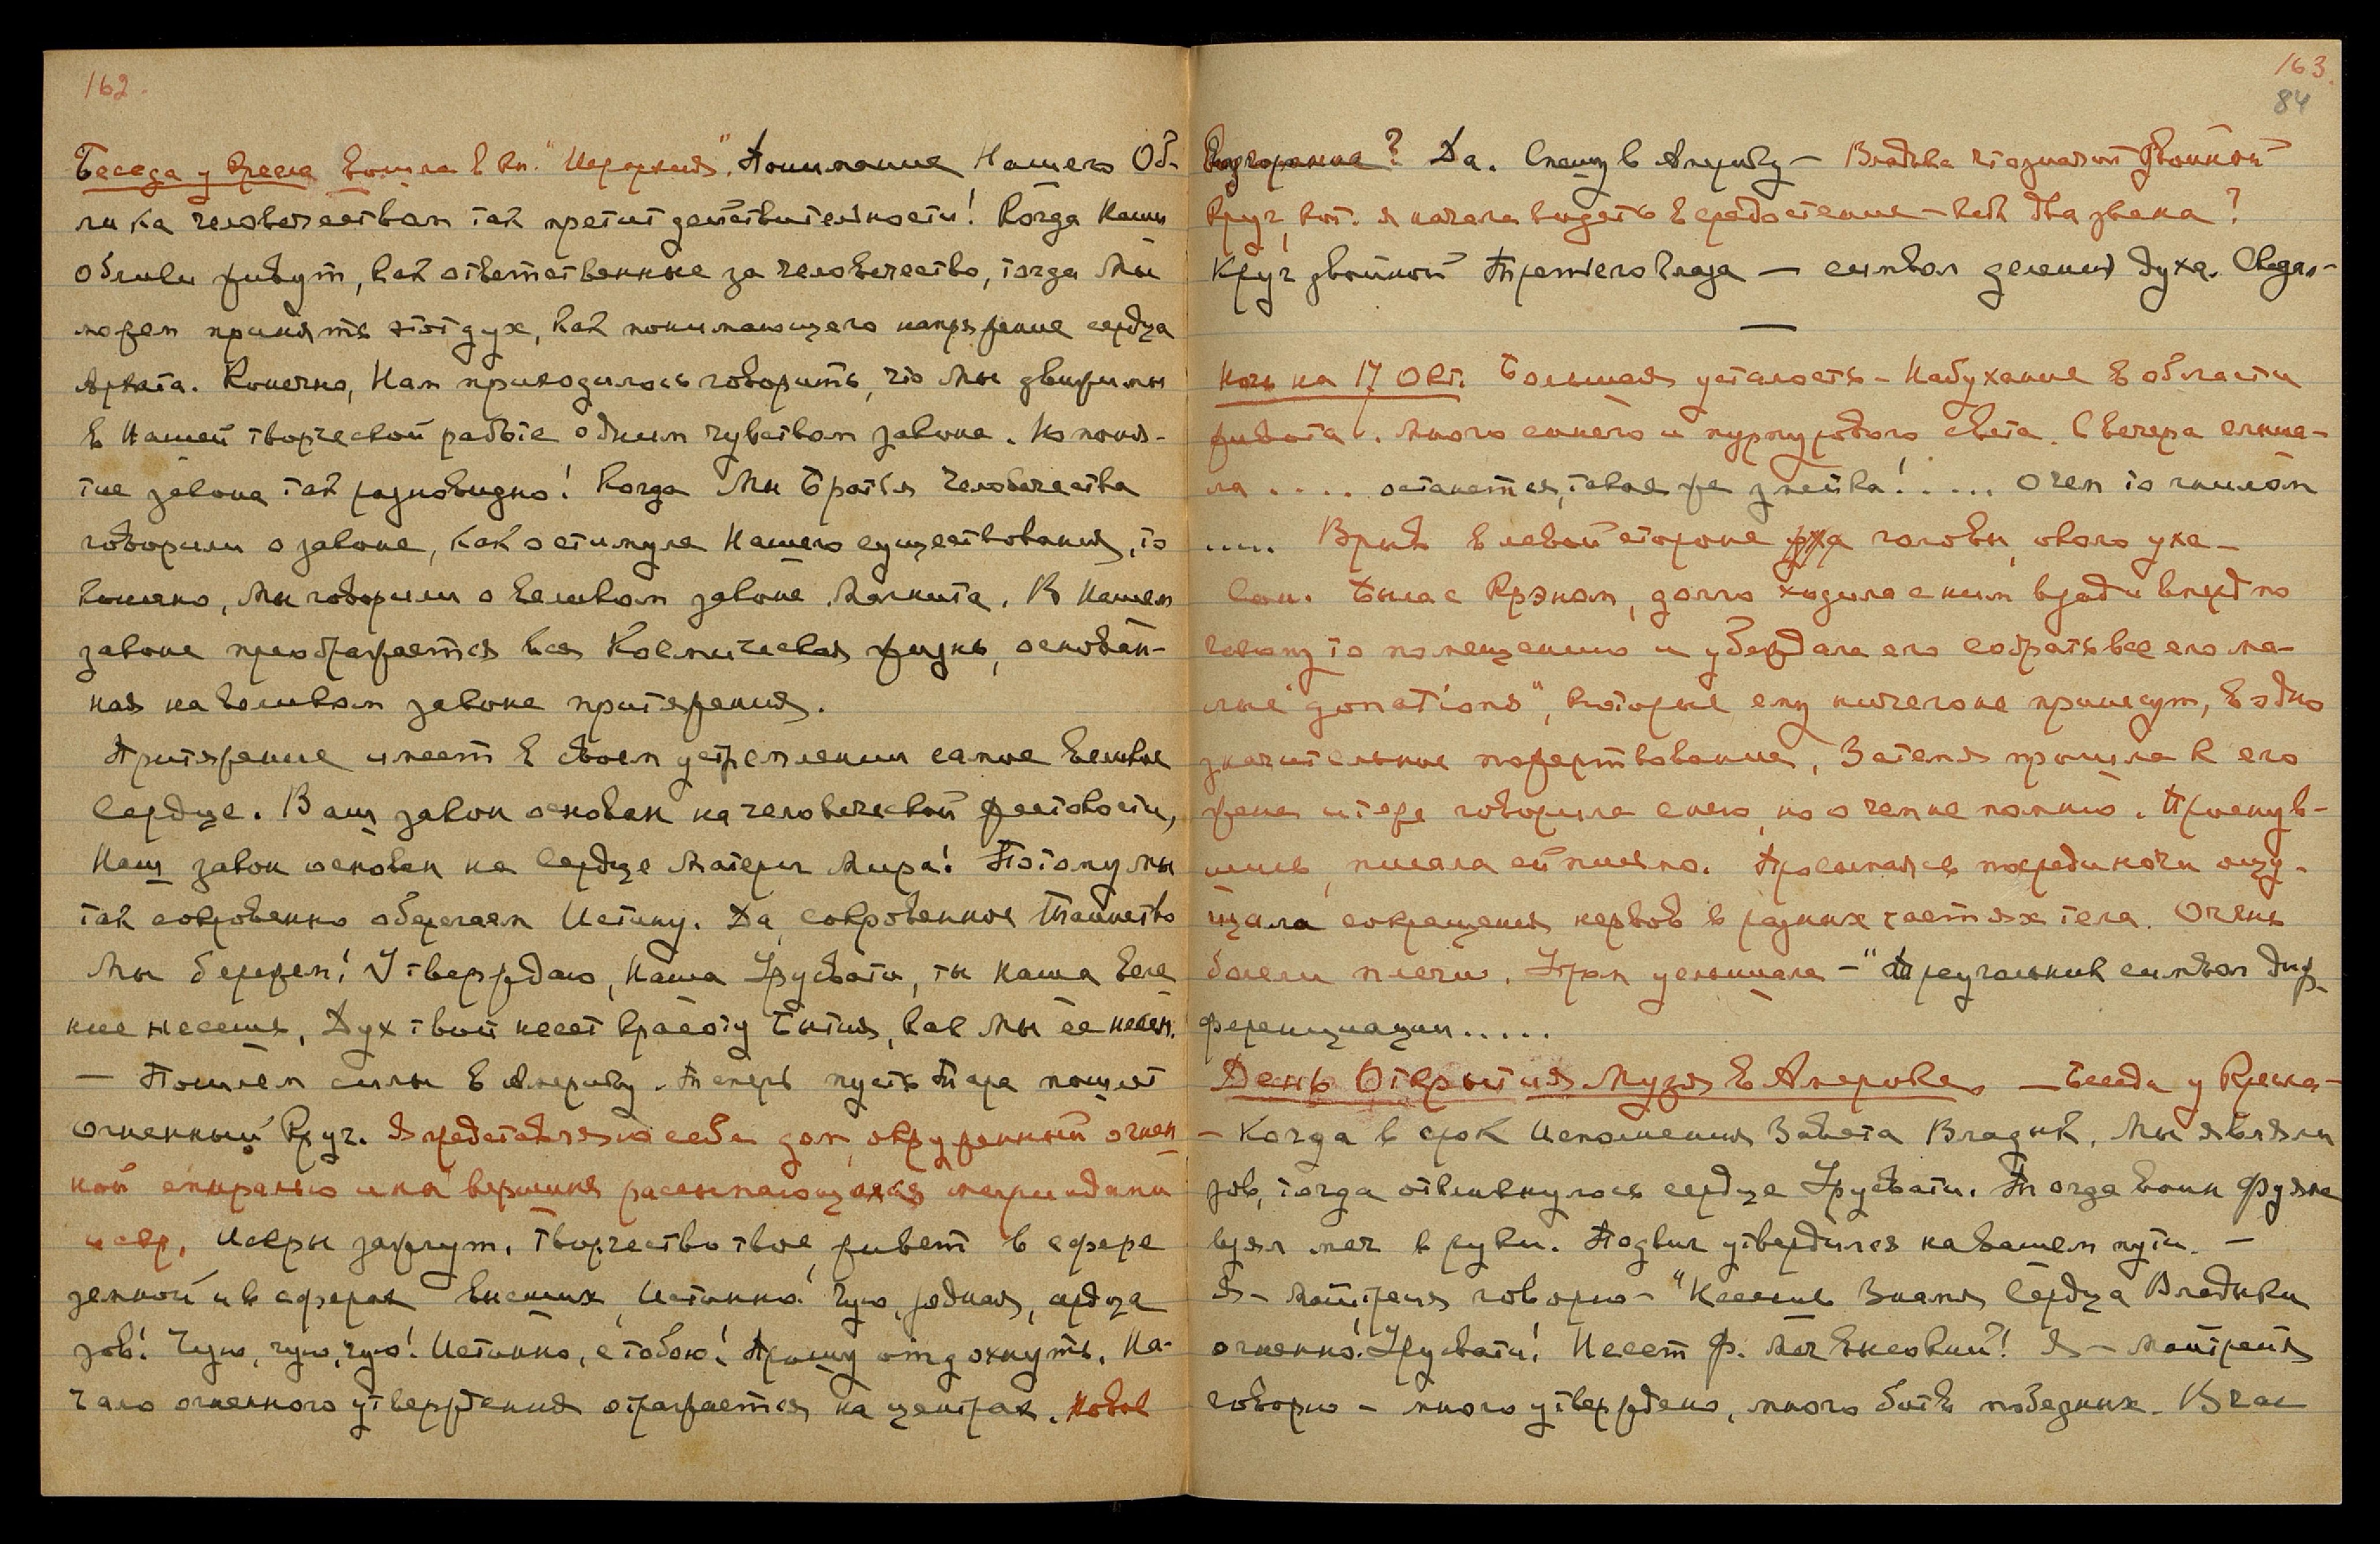 162.
Беседа у Кресла вошла в кн. "Иерархия". Понимание Нашего Об-
лика человечеством так претит действительности! Когда Наши
Облики живут, как ответственные за человечество, тогда Мы
можем принять этот дух, как понимающего напряжение сердца
Архата. Конечно, Нам приходилось говорить, что Мы движимы
в Нашей творческой работе одним чувством закона. Но поня-
тие закона так разновидно! Когда Мы Братья Человечества
говорили о законе, как о стимуле Нашего существования, то
конечно, Мы говорили о великом законе Магнита. В Нашем
законе преображается вся Космическая жизнь, основан-
ная на великом законе притяжения.
Притяжение имеет в своем устремлении самое великое
Сердце. Ваш закон основан на человеческой жестокости,
Наш закон основан на Сердце Матери Мира! Потому мы
так сокровенно оберегаем Истину. Да, сокровенное Таинство
Мы бережем! Утверждаю, Наша Урусвати, ты Наша веле-
ние несешь, Дух твой несет красоту Бытия, как Мы ее несем.
— Пошлем силы в Америку. Теперь пусть Тара пошлет
Огненный Круг. Я представляю себе дом, окруженный огнен
ной спиралью и на вершине рассыпающуюся мириадами
искр. Искры зажгут. Творчество твое живет в сфере
земной и в сферах высших, Истинно! Чую, родная, сердца
зов! Чую, чую, чую! Истинно, с тобою! Прошу отдохнуть. На-
чало огненного утверждения отражается на центрах. Новое
163.
84
Возгорание? Да. Спешу в Америку — Владыка что значит двойной
Круг, кот. я начала видеть в средостении — как два звена?
Круг двойной Третьего Глаза — символ деления духа. Сведал-
—
Ночь на 17 Окт. Большая усталость — Набухание в области
живота. Много синего и пурпурового света. С вечера слыша-
ла .... останется, такая же змейка! ..... О чем то гнилом
..... Взрыв в левой стороне головы, около уха —
Сон. Была с Крэном, долго ходила с ним взад и вперед по
какому то помещению и убеждала его собрать все его ма-
лые "donations", которые ему ничего не принесут, в одно
значительное пожертвование, Затем я пришла к его
жене и тоже говорила с нею, но о чем не помню. Проснув-
шись, писала ей письмо. Просыпаясь посреди ночи ощу-
щала сокращения нервов в разных частях тела. Очень
болели плечи. Утром услышала — "Треугольник символ диф-
ференциации.....
День Открытия Музея в Америке — Беседа у Кресла —
— Когда в срок Исполнения Завета Владык, Мы являли
зов, тогда откликнулось сердце Урусвати. Тогда воин Фуяма
взял меч в руки. Подвиг утвердился на вашем пути. —
Я — Майтрейя говорю — "Несешь Знамя Сердца Владыки
огненно! Урусвати! Несет Ф. Меч высокий! Я — Майтрейя
говорю — много утверждено, много битв победных. В час